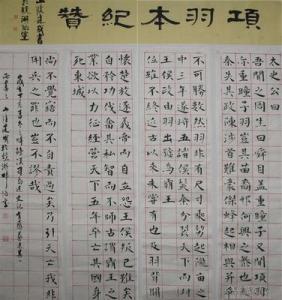 項羽本紀贊
太史公曰
吾聞之周生曰舜目蓋重瞳子又聞項
羽亦重瞳子羽豈其苗裔邪何興之暴也夫
秦失其政陳涉首難豪傑蜂起相與并爭
不可勝數然羽非有尺寸乘勢起隴畝
之中三年遂將五諸侯滅秦分裂天下而封
王侯政由羽出號為霸王
位雖不終近古以來未嘗有也及羽背關
懷楚放逐義帝而自立怨王侯叛己難矣
自矜功伐奮其私智而不師古謂霸王之
業欲以力征經營天下五年卒亡其國身
死東城
尚不覺寤而不自責過矣乃引天亡我非
用兵之罪也豈不謬哉